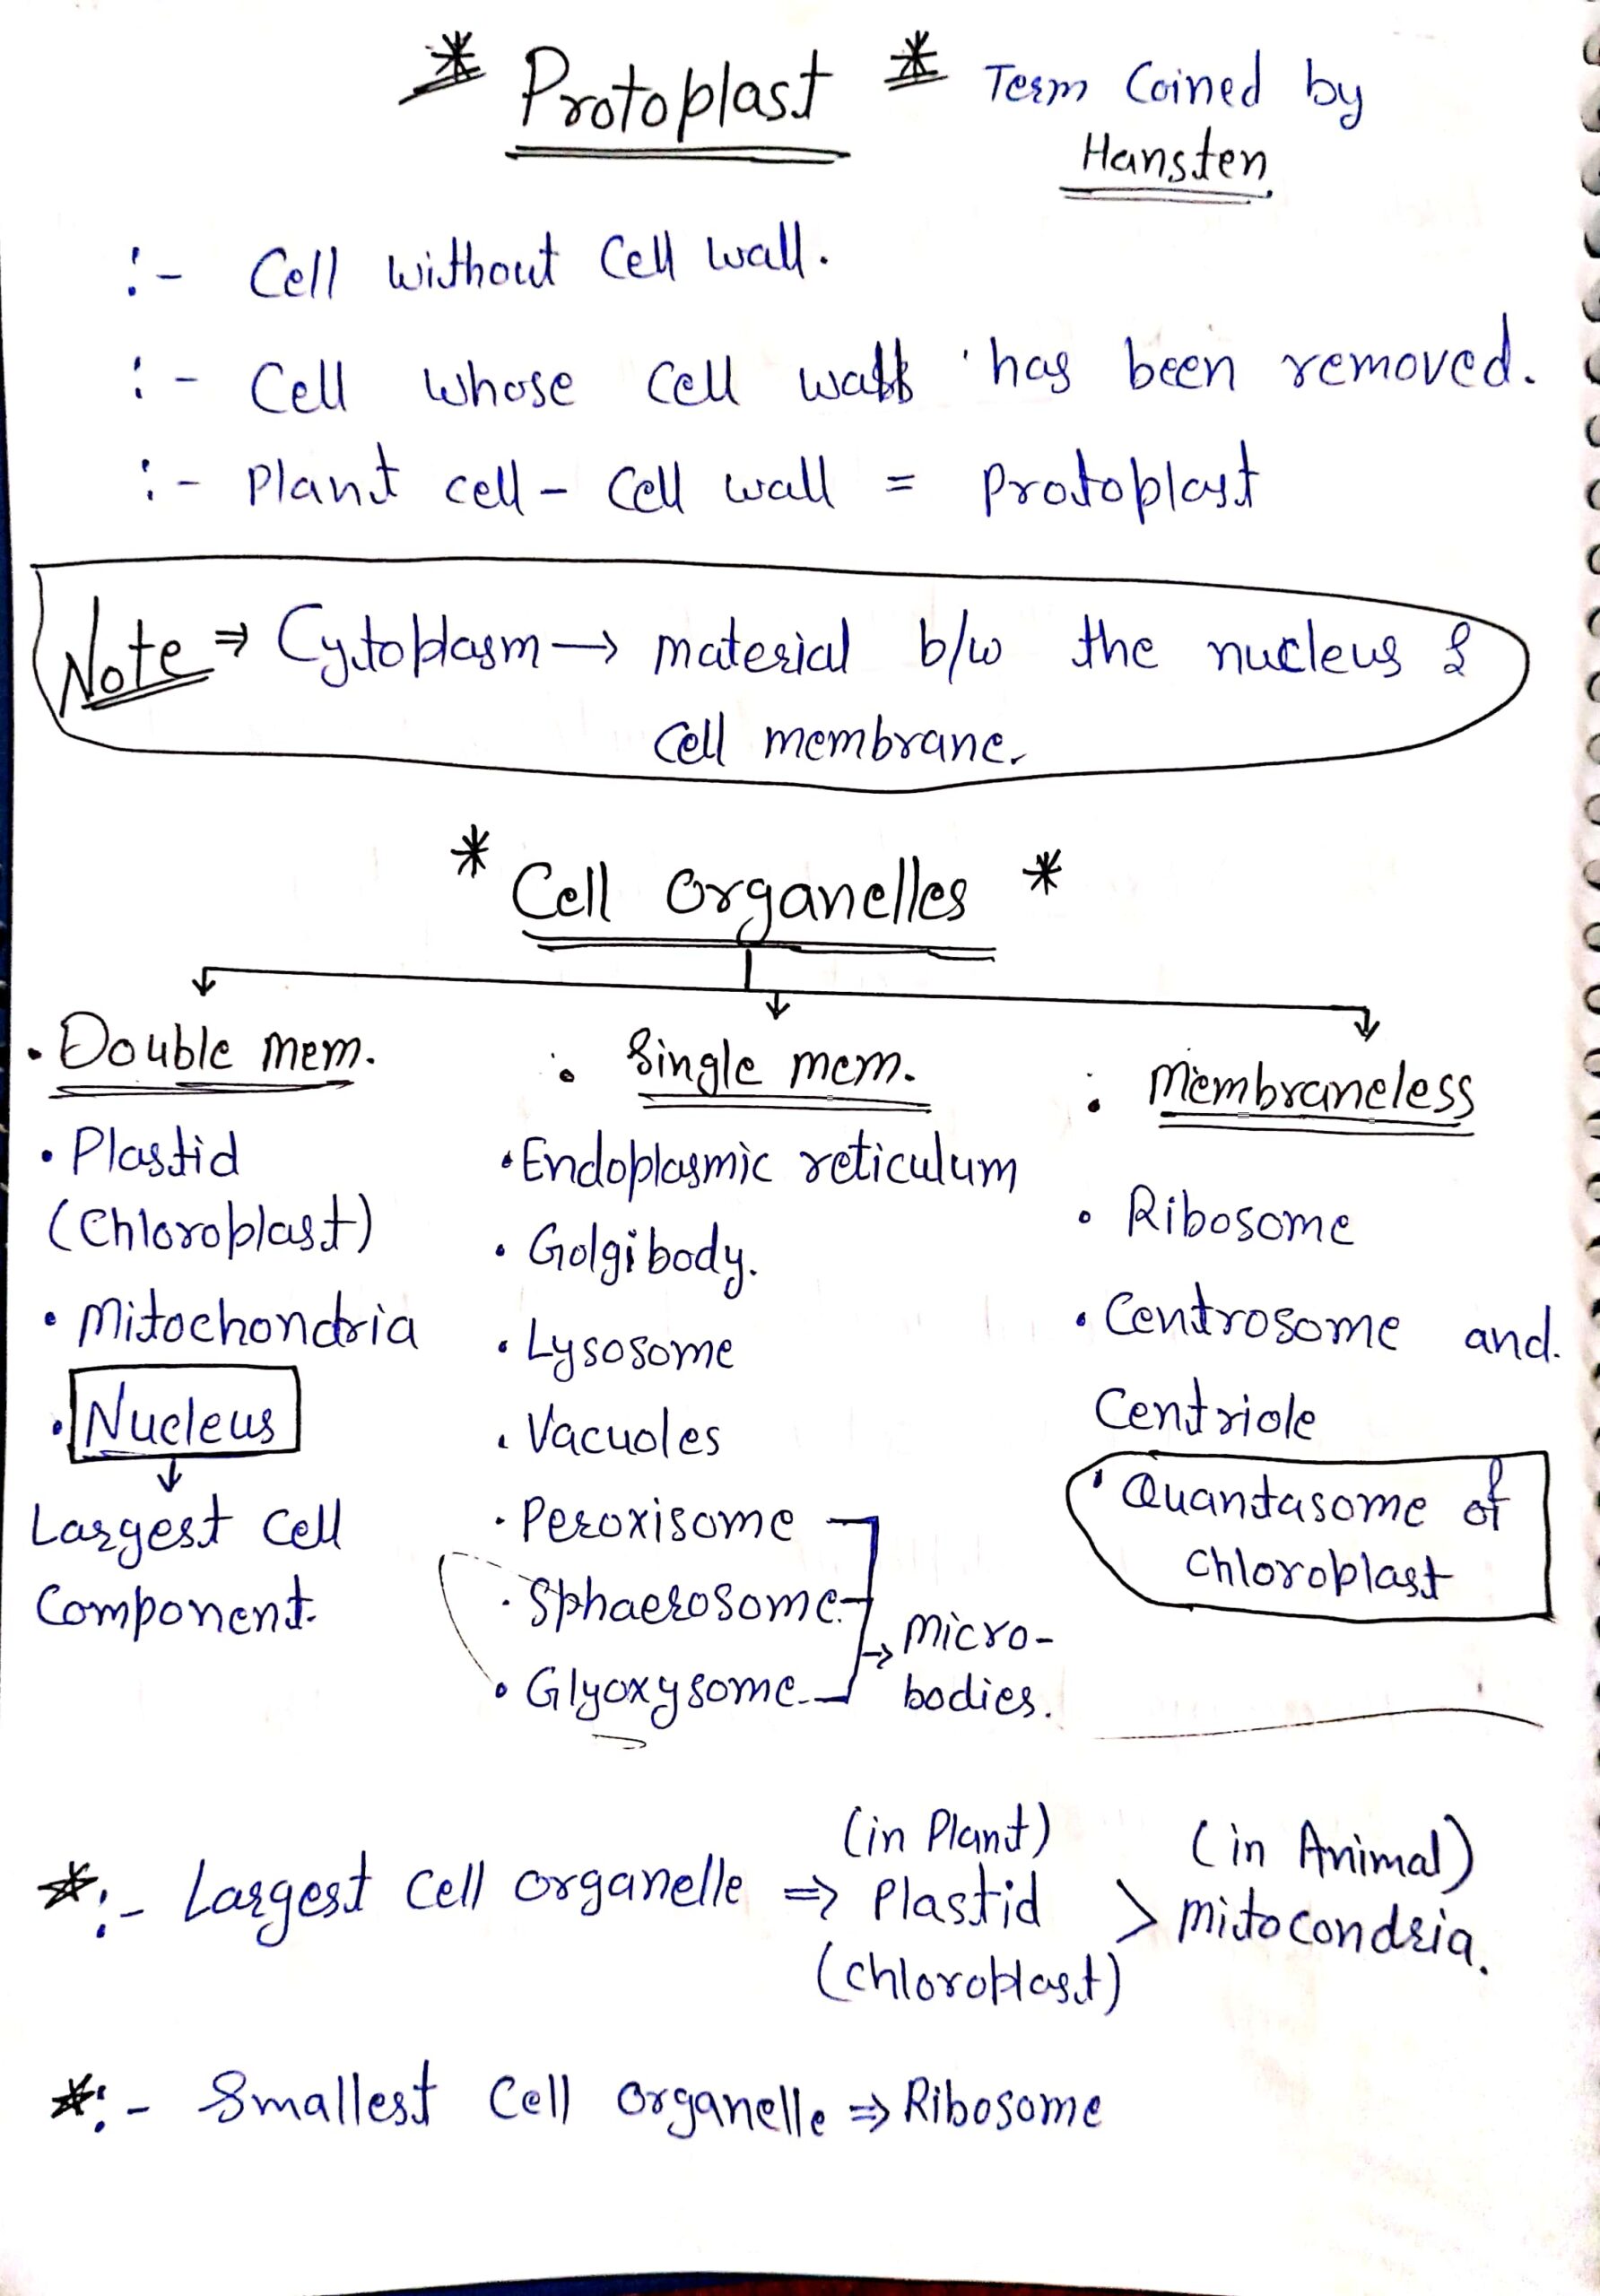 * Protoplast * Term Coined by
Hansten
:- Cell without Cell wall.
:- Cell whose cell wall has been removed.
:- Plant cell - Cell wall = Protoplast
Note ⇒ Cytoplasm → material b/w the nucleus &
Cell membrane.
* Cell Organelles *
• Double mem.
• Plastid
(Chloroplast)
• Mitochondria
• Nucleus
↓
Largest Cell
Component.
• Single mem.
• Endoplasmic reticulum
• Golgibody.
• Lysosome
• Vacuoles
• Peroxisome
• Sphaerosome
• Glyoxysome
→ Micro-
bodies.
• Membraneless
• Ribosome
• Centrosome and.
Centriole
• Quantasome of
Chloroplast
(in Plant) (in Animal)
*:- Largest Cell organelle ⇒ Plastid > Mitocondria.
(chloroplast)
*:- Smallest Cell organelle ⇒ Ribosome